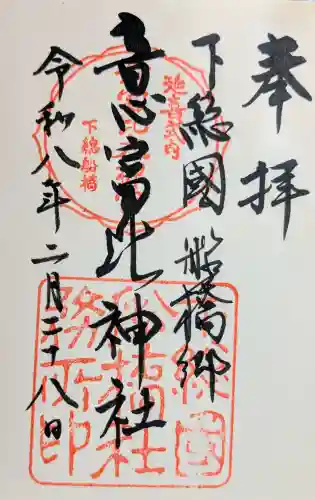 奉拝
下総國船橋郷
意富比神社
令和八年二月二十八日
延喜式内
下総船橋